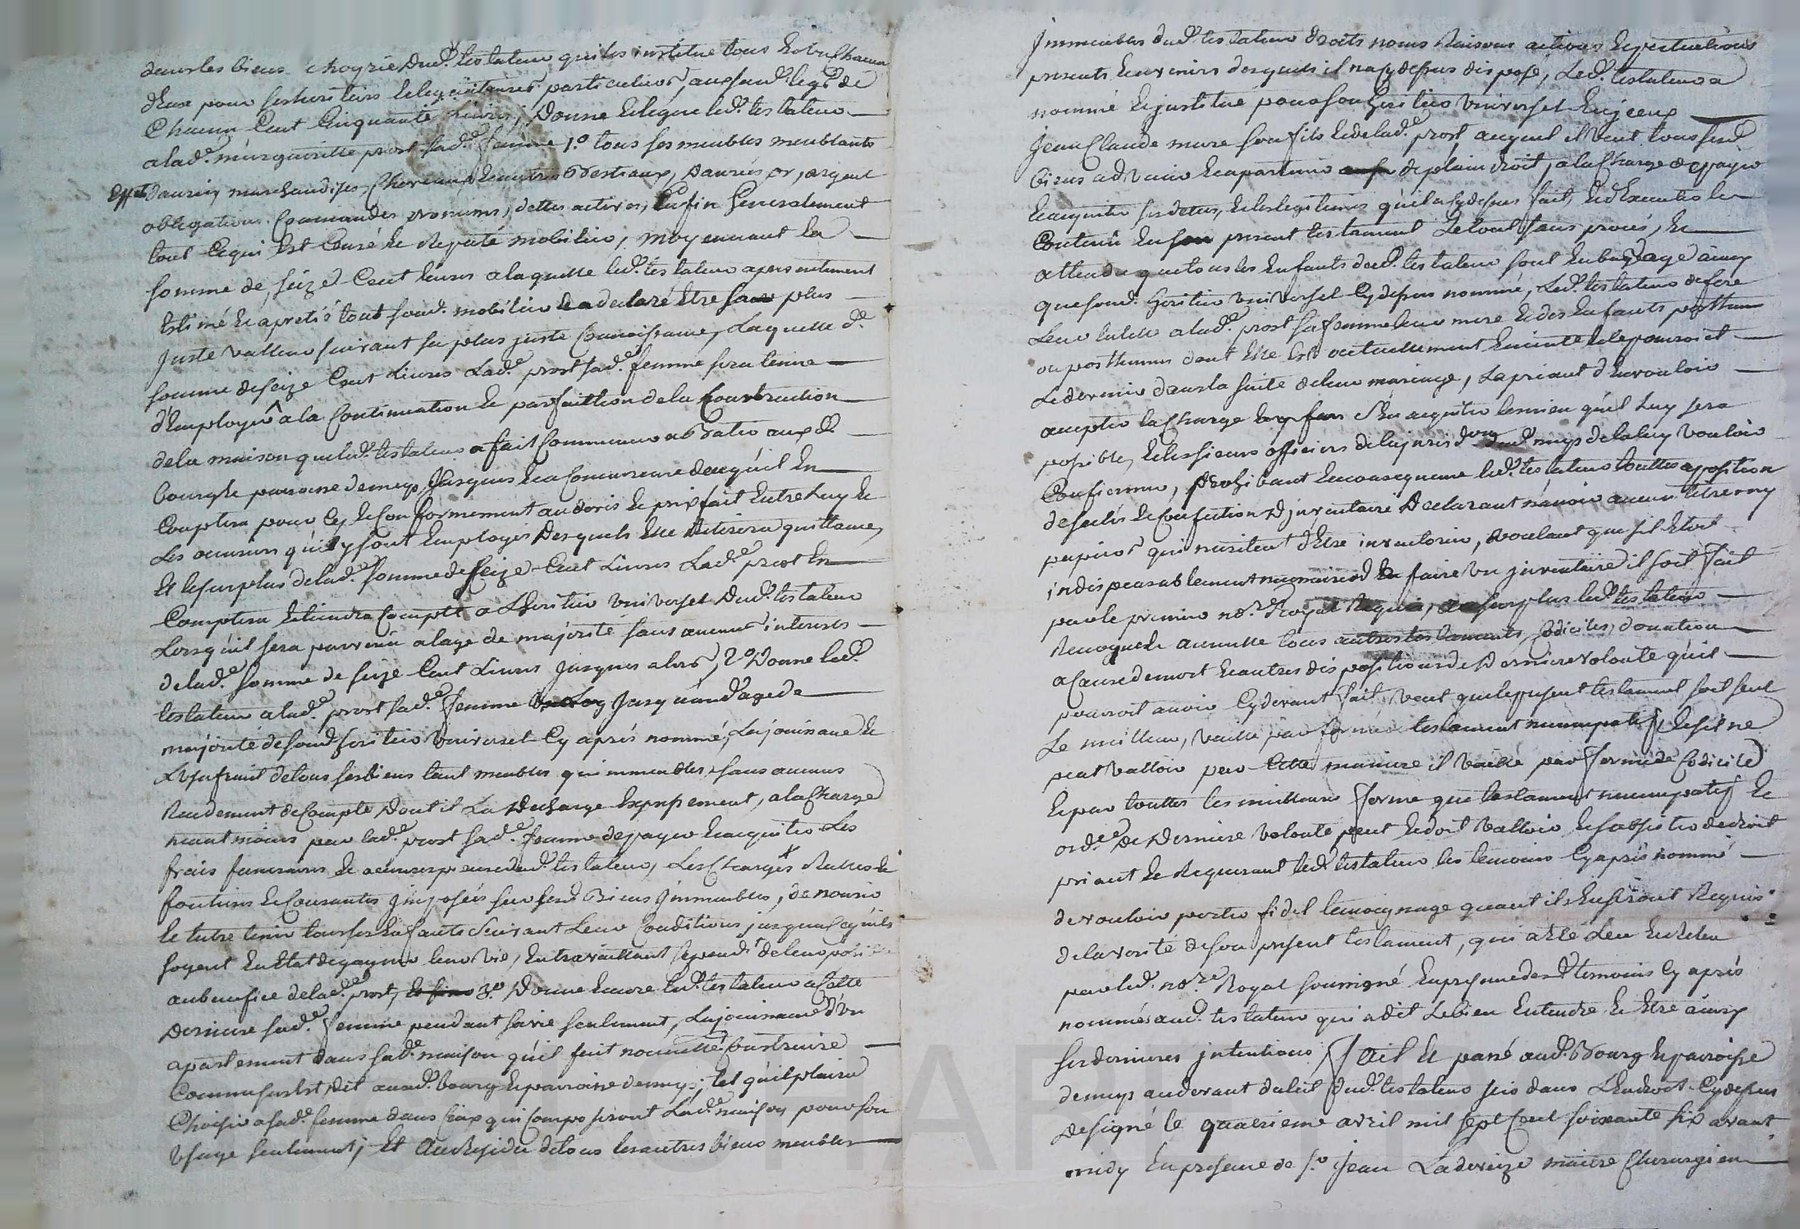 dans les biens hoyrie dud. testateur qu'il institue tous et un chacun
d'Eux pour ses heritiers et legitaires particuliers, au sud. legs de
Chacun Cent Cinquante Livres, Donne et legue led. testateur
a lad.e marguerite prost sad.e femme 1.o tous ses meubles meublants
Effets danrées marchandises chevaux et autres Bestiaux, Danrées or, argent
obligations Commandes promesses, dettes actives, Enfin Generalement
tout Ce qui Est Censé et Reputé mobilier, moyennant la
somme de seize Cent livres a laquelle led. testateur a presentement
Estimé et apretié tout soud. mobilier et a declaré Etre sa plus
juste valleur suivant sa plus juste Connoissance, Laquelle d.e
somme de seize Cent Livres Lad.e prost sad.e femme sera tenue
d'Employer a la Continuation et parfaittion de la Construction
de la maison que led. testateur a fait Commencer a Batir aud.
bourg et paroisse de mys, jusques et a Concurrence de ce qu'il En
Couptera pour Ce, et Conformement au devis et prix fait Entre luy et
Les ouvriers qu'il y sont Employés Desquels Elle Retirera quittance,
Et le surplus de lad.e somme de seize Cent Livres Lad.e prost En
Comptera et tiendra Compte a L'heritier universel dud. testateur
Lorsqu'il sera parvenu a l'age de majorité sans aucuns interests
de lad.e somme de seize Cent Livres jusques alors, 2.o Donne led.
testateur a lad.e prost sad.e femme jusqu'aud. age de
majorité de soud. heritier universel Cy après nommé, La jouissance et
L'Usufruit de tous ses biens tant meubles qui immeubles sans aucuns
Rendement de Compte Dont il La Decharge Expressement, a la Charge
neant moins par lad.e prost sad.e femme de payer et acquitter Les
frais funeraires et aumones dud. testateur, Les Charges Rentes
foncieres et Courantes Imposées sur sesd. Biens Immeubles, de nourir
Et Entretenir tous ses Enfants Suivant Leur Conditions jusques a ce qu'ils
soyent En Etat de gagner leur vie, En travaillant Cepend.t de leur possible
au benefice de lad.e prost, 3.o Donne Encore led. testateur a Cette
Derniere sad.e femme pendant sa vie seulement, La jouissance d'Un
apartement dans sad.e maison qu'il fait nouvell.t Construire
Comme sus Est Dit aud. bourg et paroisse de mys, tel qu'il plaira
Choisir a sad.e femme dans Ceux qui Composeront Lad.e maison pour son
Usage seulement; Et Au Residu de tous les autres biens meubles
Immeubles dud. testateur droits noms Raisons actions Et pretentions
presents Et avenirs desquels il n'a cy dessus disposé, Led. testateur a
nommé Et institué pour son heritier Universel Enjceux
Jean Claude mure son fils Et de lad.e prost, auquel il Veut tous sesd.
biens advenir Et apartenir de plain droit, a la Charge de payer
Et acquitter ses dettes, Et les legitimes qu'il a Cy dessus fait, Et d'Executer le
Contenu En son present testament Le tout sans procés, Et
attendu que tous les Enfants dud. testateur sont En bas age ainsy
que soud. heritier Universel Cy dessus nommé, Led. testateur defere
Leur tutelle a lad.e prost sa femme leur mere Et des Enfants posthume
ou posthumes dont Elle Est actuellement Enceinte Et le pourroit
Et devenir dans la suite de leur mariage, La priant d'En vouloir
accepter la Charge Et s'En aquiter le mieu qu'il luy sera
possible, Et les sieurs officiers de la jurisd.on dud. mys de la luy vouloir
Confirmer, prohibant En consequence led. testateur touttes apposition
de scelés Et Confection D'inventaire Declarant n'avoir aucun titres ny
papiers qui meritent d'Etre inventoriés, voulant que s'il Etoit
indispensablement necessaire d'En faire un inventaire il soit fait
par le premier no.re Royal Requis, au surplus led. testateur
Revoque Et annulle tous autres testaments, Codiciles, donation
a Cause de mort Et autres dispositions de Derniere volonté qu'il
pourroit avoir Cy devant fait, veut que le present testament soit seul
Le meilleur, vaille par forme de testament nuncupatif Et s'il ne
peut valloir par Cette maniere il vaille par forme de Codicile
Et par touttes les meilleures forme que testament nuncupatif Et
ord.ce de Derniere volonté peut Et doit valloir, Et subsister de droit
priant Et Requerant led. testateur les temoins Cy après nommé
de vouloir porter fidel temoignage quant ils En seront Requis
de la verité de son present testament, qui a Eté Leu Et Releu
par led. no.re Royal soussigné En presence des d. temoins Cy après
nommés aud. testateur qui a dit Le bien Entendre Et Etre ainsy
ses dernieres intentions, fait Et passé aud. Bourg Et paroisse
de mys au devant du lit dud. testateur sis dans L'Endroit Cy dessus
Designé le quatrieme avril mil sept Cent soixante six avant
midy En presence de s.r Jean Ladereize maitre Chirurgien